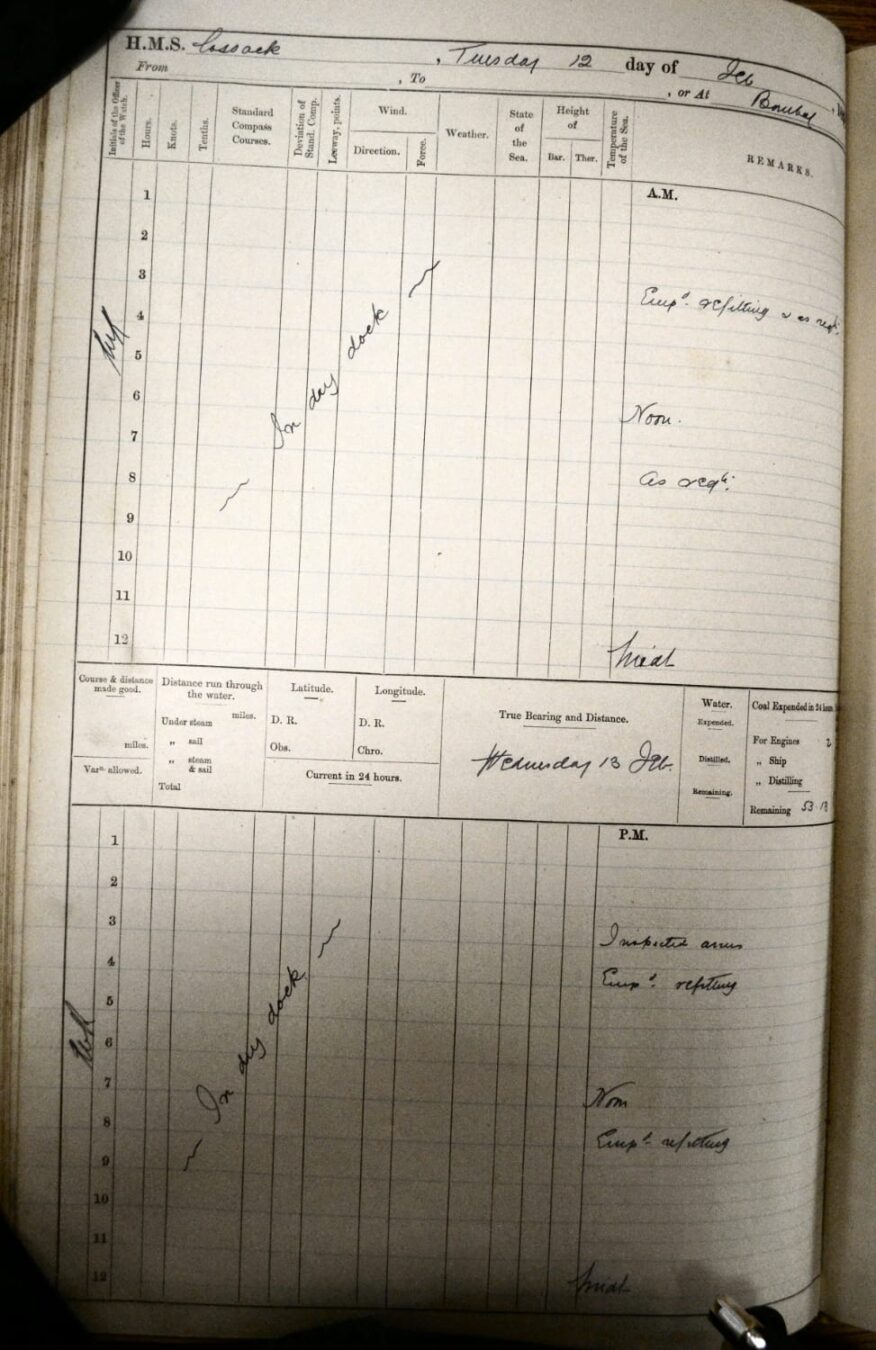 H.M.S. Cossack , Tuesday 12 day of Feb
From , To , or At Bombay
Initials of the Officer of the Watch.
Hours.
Knots.
Tenths.
Standard Compass Courses.
Deviation of Stand. Comp.
Leeway, points.
Wind.
Direction.
Force.
Weather.
State of the Sea.
Height of
Bar. Ther.
Temperature of the Sea.
REMARKS.
A.M.
1
2
3
Emp^d. refitting & as req^d.
4
5
6
Noon.
7
8
As req^d.
9
10
11
12
Mid^t
In dry dock
Course & distance made good.
miles.
Var^n. allowed.
Distance run through the water.
miles.
Under steam
„ sail
„ steam & sail
Total
Latitude.
D. R.
Obs.
Longitude.
D. R.
Chro.
Current in 24 hours.
True Bearing and Distance.
Wednesday 13 Feb.
Water.
Expended.
Distilled.
Remaining.
Coal Expended in 24 hours.
For Engines 2
„ Ship
„ Distilling
Remaining 53.13
P.M.
1
2
3
Inspected arms
4
Emp^d. refitting
5
6
7
Noon
8
Emp^d. refitting
9
10
11
12
Mid^t
In dry dock